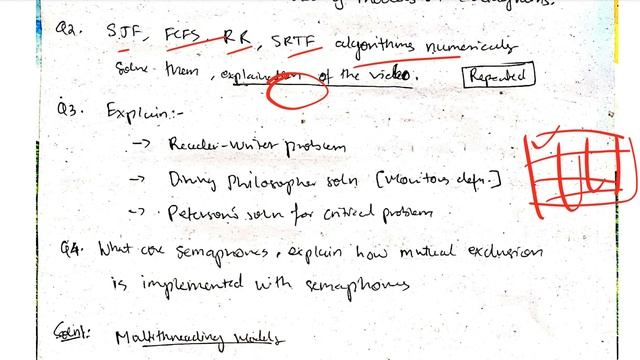 Q2. SJF, FCFS, RR, SRTF algorithms numericals
Solve them, explanation of the video. Repeated
Q3. Explain:-
→ Reader-writer problem
→ Dining Philosopher soln [Monitors defn.]
→ Peterson's soln for critical problem
Q4. What are semaphores, explain how mutual exclusion
is implemented with semaphores
Soln1: Multithreading Models